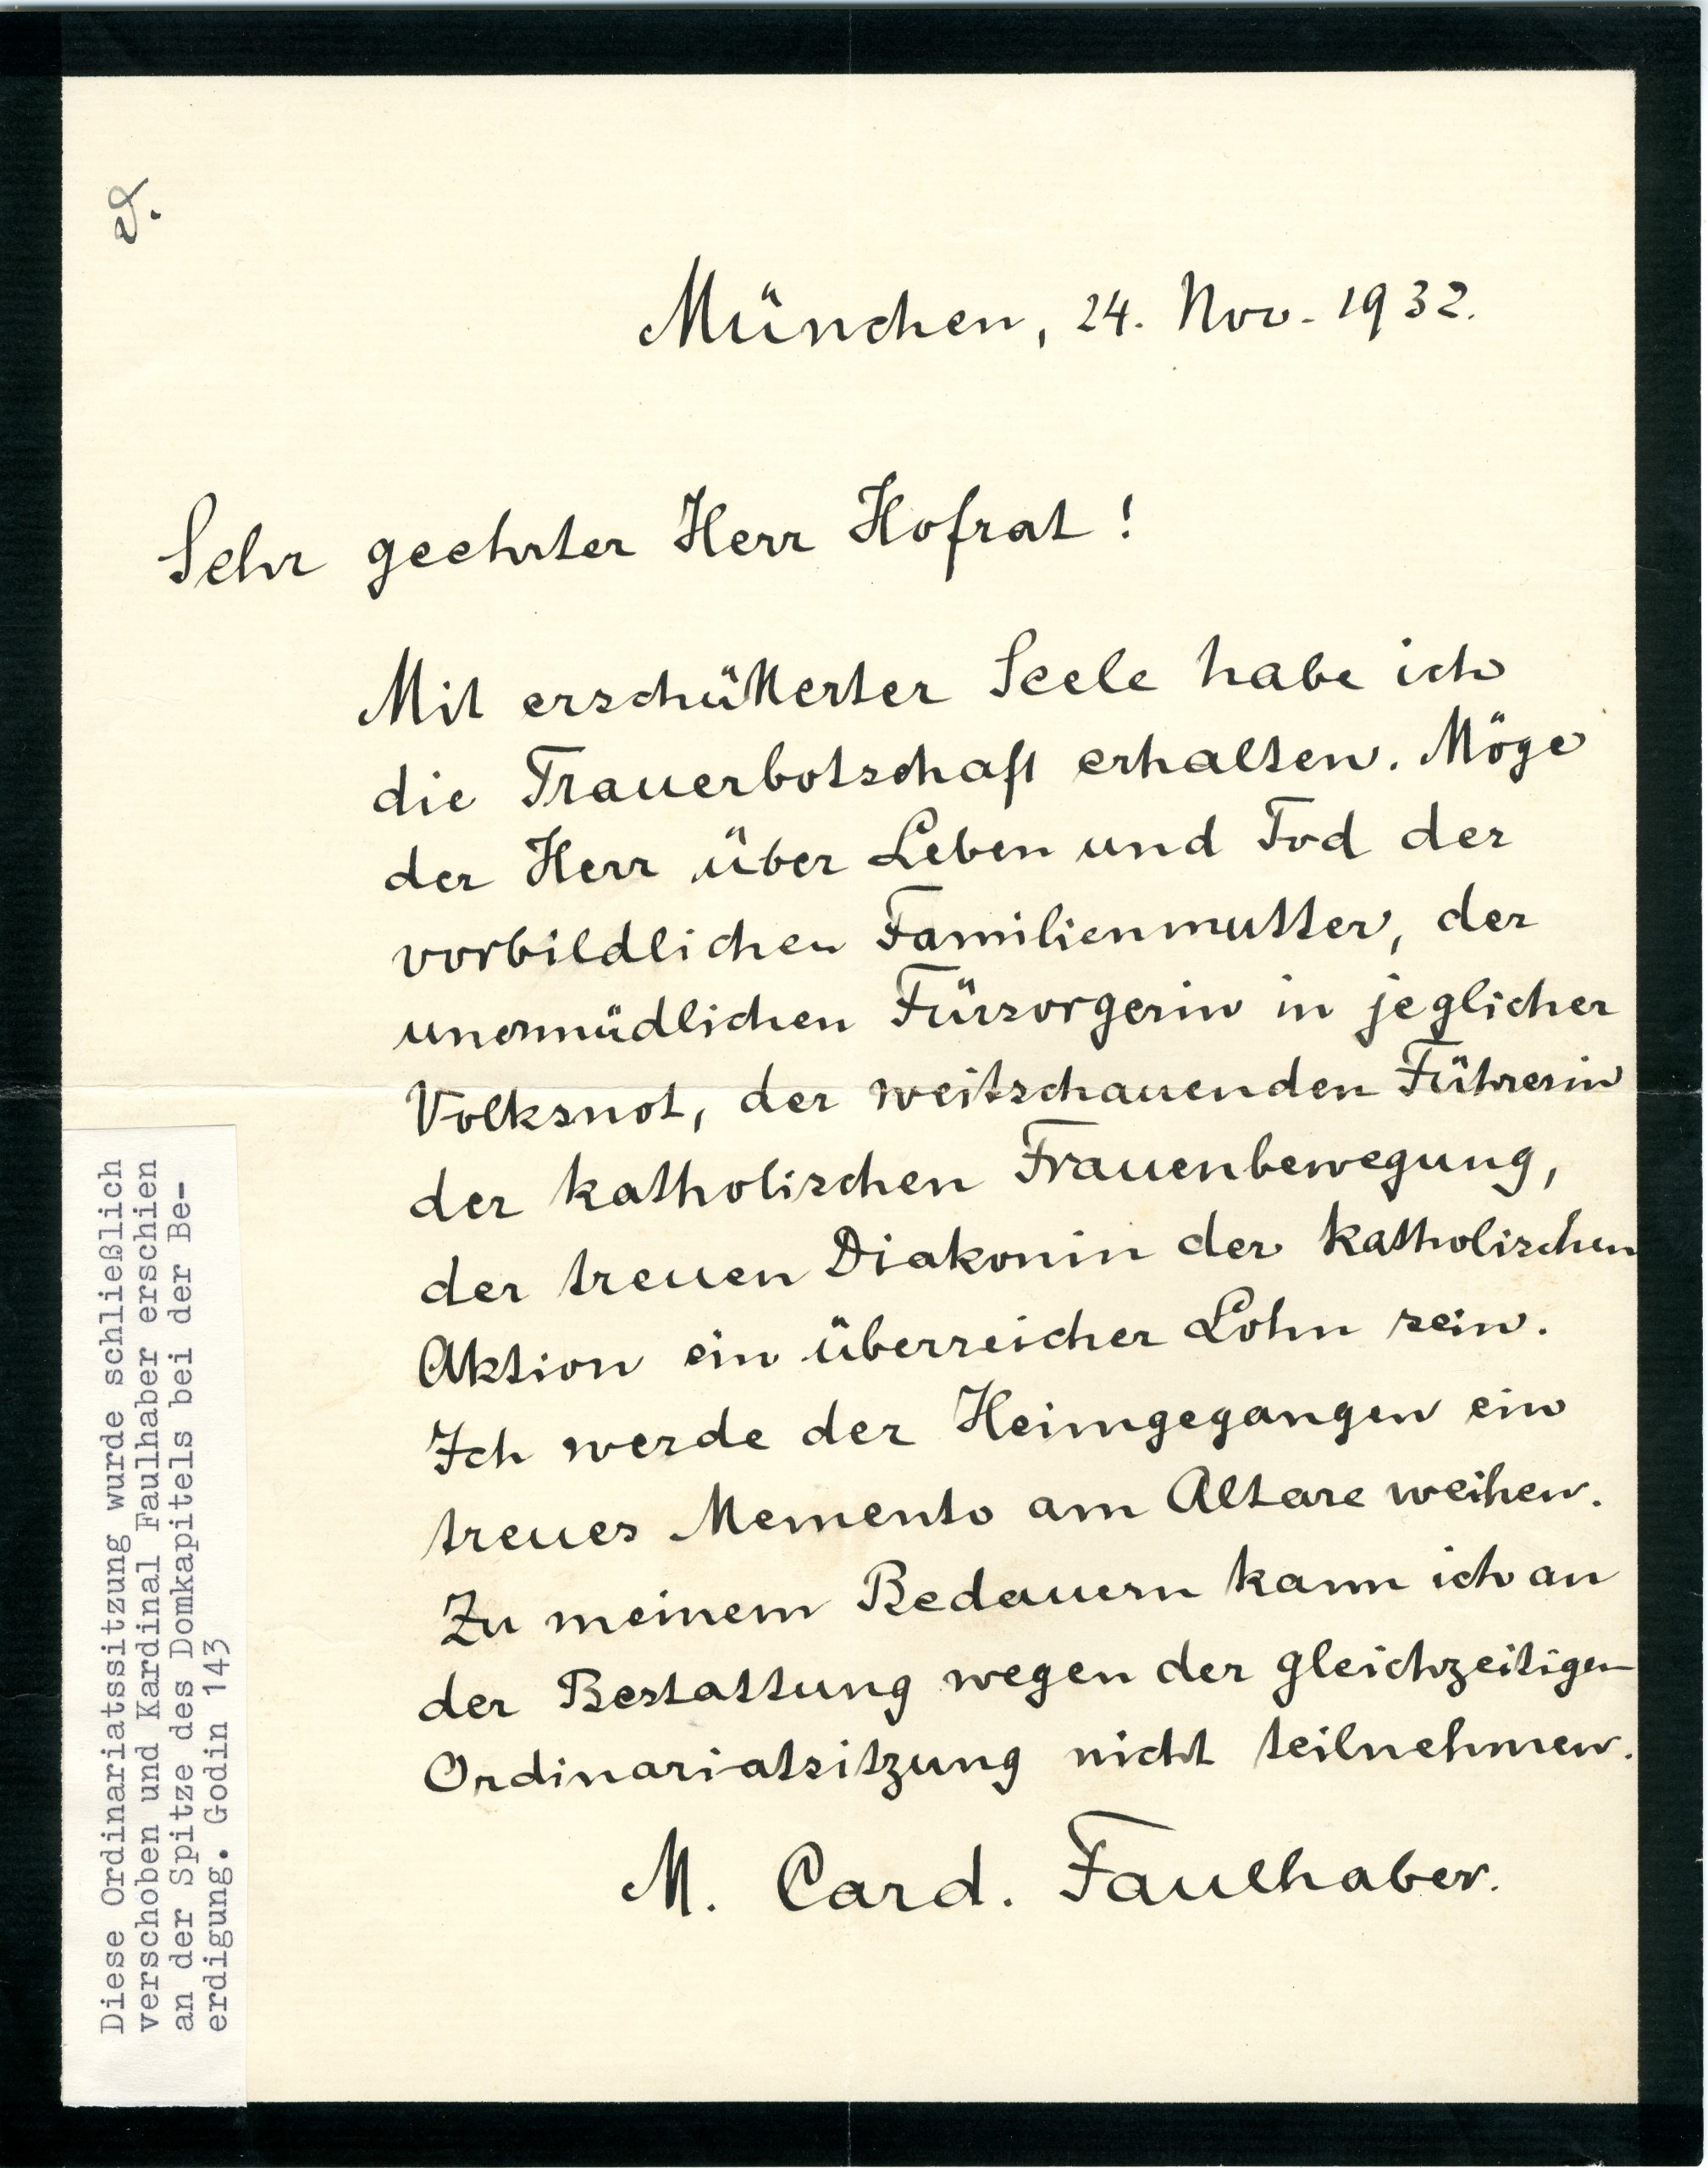 München, 24. Nov. 1932.
Sehr geehrter Herr Hofrat!
Mit erschütterter Seele habe ich
die Trauerbotschaft erhalten. Möge
der Herr über Leben und Tod der
vorbildlichen Familienmutter, der
unermüdlichen Fürsorgerin in jeglicher
Volksnot, der weitschauenden Führerin
der katholischen Frauenbewegung,
der treuen Diakonin der katholischen
Aktion ein überreicher Lohn sein.
Ich werde der Heimgegangen ein
treues Memento am Altare weihen.
Zu meinem Bedauern kann ich an
der Bestattung wegen der gleichzeitigen
Ordinariatsitzung nicht teilnehmen.
M. Card. Faulhaber.
Diese Ordinariatssitzung wurde schließlich
verschoben und Kardinal Faulhaber erschien
an der Spitze des Domkapitels bei der Be-
erdigung. Godin 143